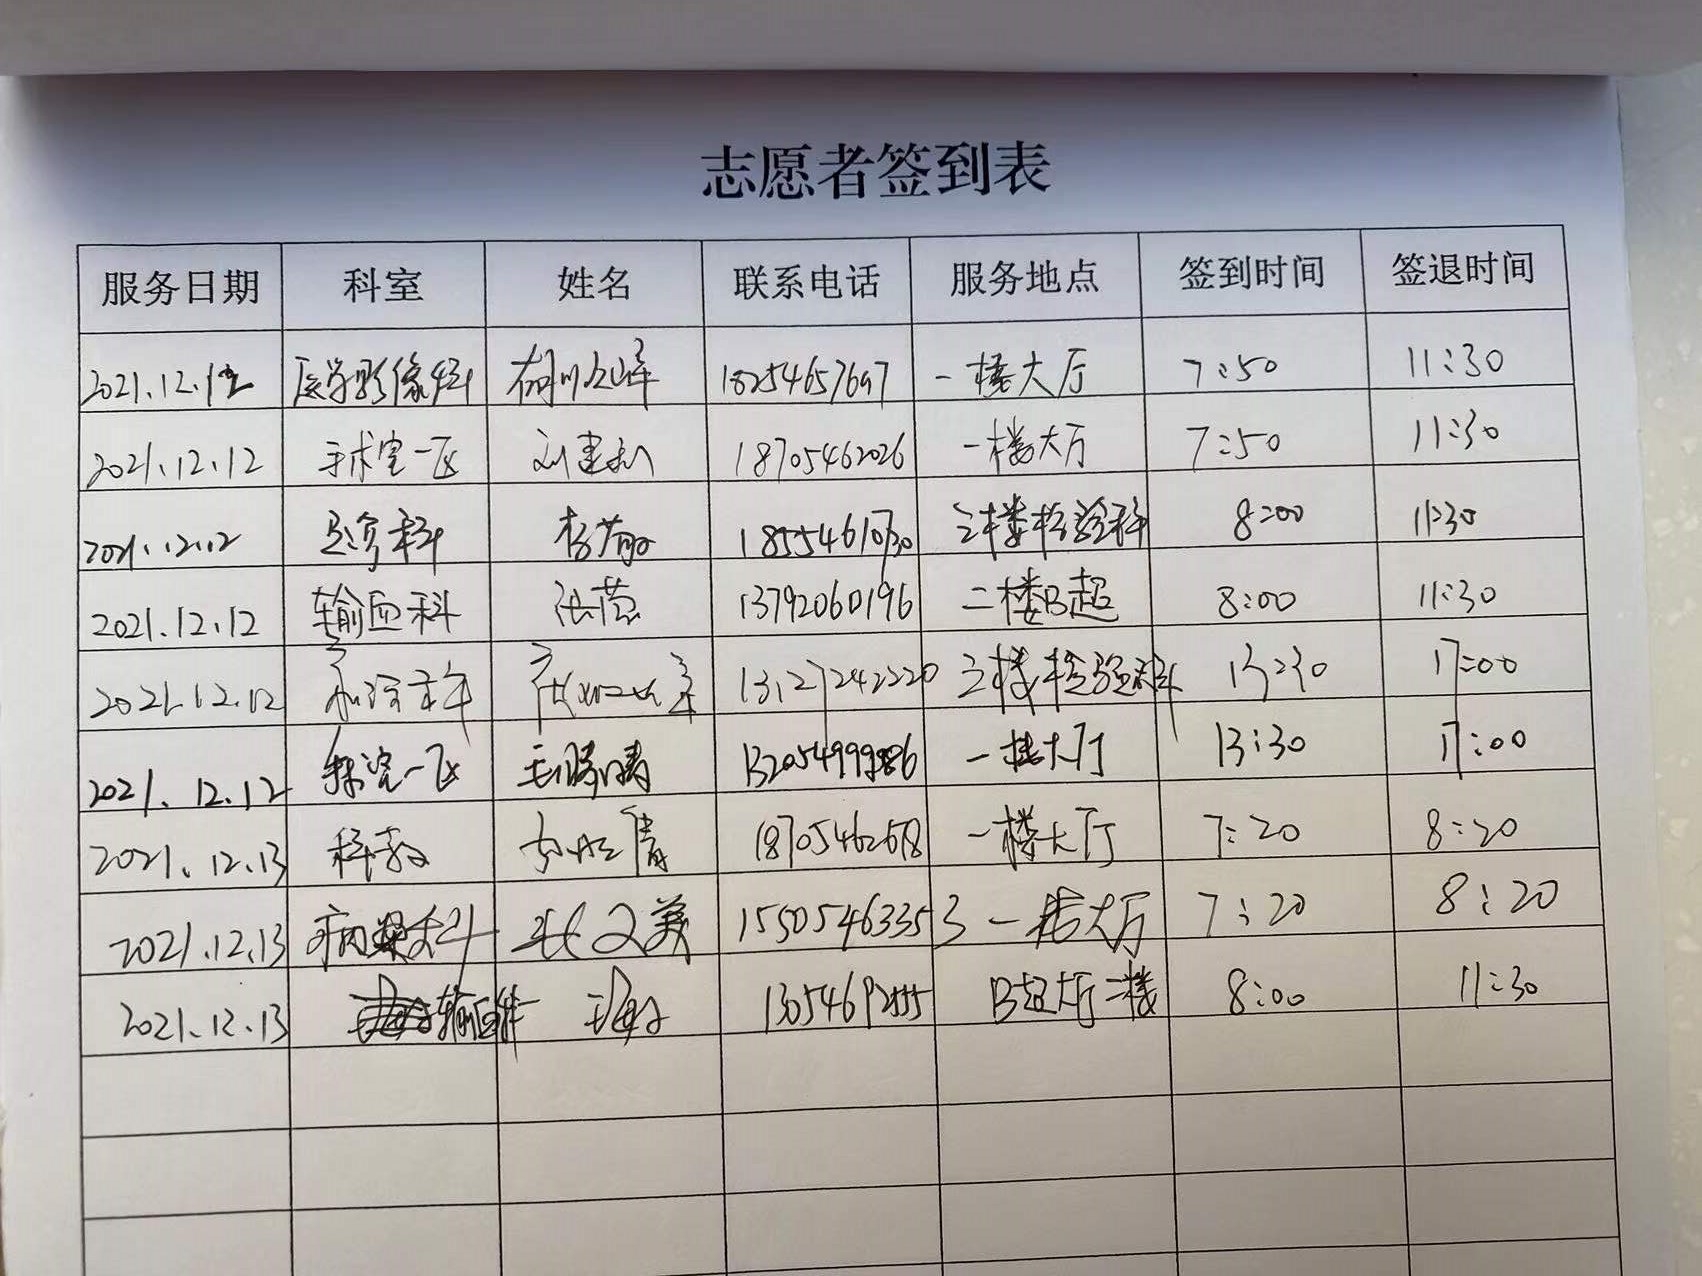 志愿者签到表
服务日期 科室 姓名 联系电话 服务地点 签到时间 签退时间
2021.12.12 医学影像科 一楼大厅 7:50 11:30
2021.12.12 手术室一区 刘建利 18705462026 一楼大厅 7:50 11:30
2021.12.12 科 18554610730 三楼检验科 8:00 11:30
2021.12.12 输血科 张蕊 13792060196 二楼B超 8:00 11:30
2021.12.12 13127242220 三楼检验科 13:30 17:00
2021.12.12 一区 一楼大厅 13:30 17:00
2021.12.13 科教 18705462678 一楼大厅 7:20 8:20
2021.12.13 病理科 张文美 15505463353 一楼大厅 7:20 8:20
2021.12.13 输血科 B超大厅二楼 8:00 11:30